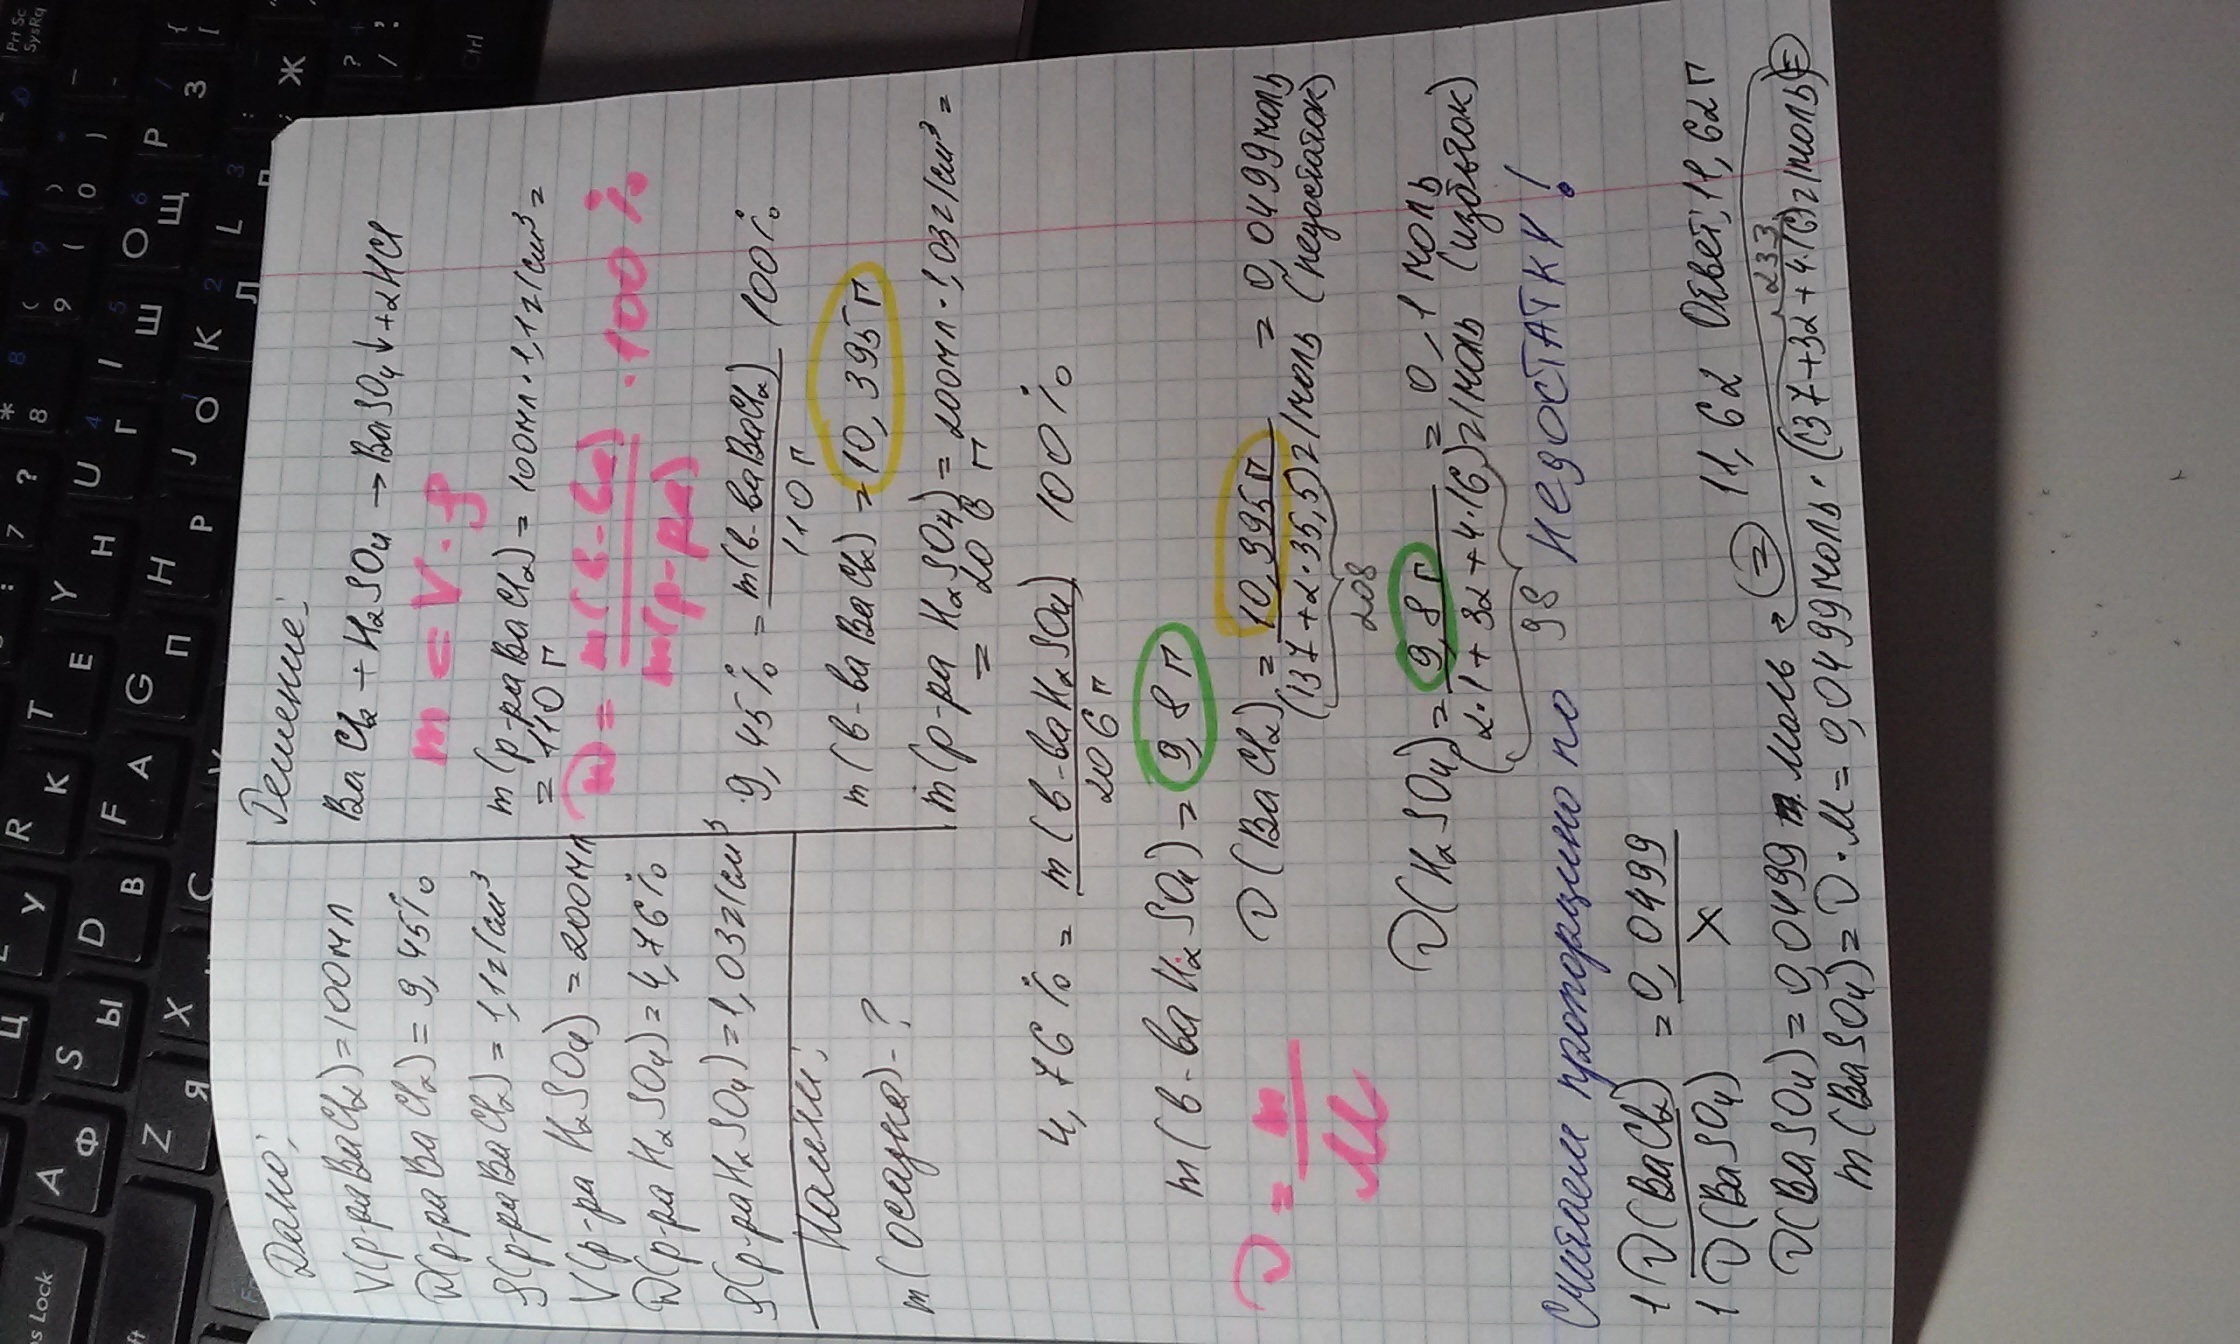 Дано:
V(р-раBaCl₂)=100мл
ω(р-раBaCl₂)=9,45%
ρ(р-раBaCl₂)=1,1г/см³
V(р-ра H₂SO₄)=200мл
ω(р-ра H₂SO₄)=4,76%
ρ(р-раH₂SO₄)=1,03г/см³
Найти:
m(осадка)-?
Решение:
BaCl₂+H₂SO₄→BaSO₄↓+2HCl
m=V·ρ
m(р-раBaCl₂)=100мл·1,1г/см³=
=110г
ω=m(в-ва)/m(р-ра)·100%
9,45%=m(в-ваBaCl₂)/110г 100%
m(в-ваBaCl₂)=10,395г
m(р-раH₂SO₄)=200мл·1,03г/см³=
=206г
4,76%=m(в-ваH₂SO₄)/206г 100%
m(в-ваH₂SO₄)=9,8г
ν=m/M
ν(BaCl₂)=10,395г/(137+2·35,5)г/моль=0,0499моль
208 (недостаток)
ν(H₂SO₄)=9,8г/(2·1+32+4·16)г/моль=0,1моль
98 (избыток)
Считаем пропорцию по НЕДОСТАТКУ!
1ν(BaCl₂)/1ν(BaSO₄)=0,0499/X
ν(BaSO₄)=0,0499 моль
m(BaSO₄)=ν·M=0,0499моль·(137+32+4·16)г/моль=
233
= 11,62 Ответ:11,62г